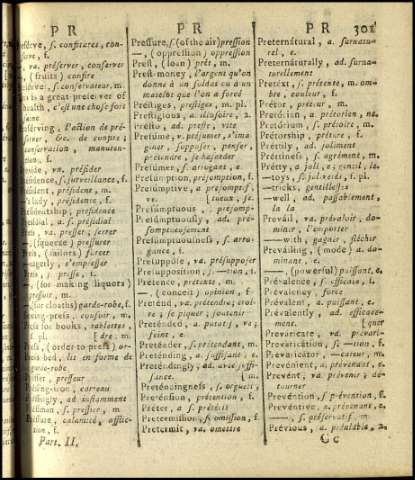 PR
PR
PR 301
s. confitures, con-
va. préserver, conserver
(fruits) confire
s. conservateur, m.
is a great preserver of
health, c'est une chose fort
l'action de pré-
server, &c. de confire;
conservation, manuten-
tion, f.
vn. présider
s. surveillance, f.
président, m.
présidente, f.
présidence
a. présidial
va. presser, serrer
(squeeze) pressurer
(insists) forcer
s'empresser
s. presse, f.
(for making liquors)
pressoir, m.
(for cloaths) garde-robe, f.
cousoir, m.
for books, tablettes,
f. pl. [dre. m.
(order to press) or-
bed, lit en forme de
garde-robe
presseur
carreau
ad. instamment
s. pressier, m.
calamité, afflic-
tion, f.
Part. II.
Pressure, s. (of the air) pression
—, (oppression) oppression
Prest, (loan) prêt, m.
Prest-money, l'argent qu'on
donne à un soldat ou à un
matelot que l'on a forcé
Préstiges, prestiges, m. pl.
Préstigious, a. illusoire, 2.
Présto, ad. preste, vite
Présúme, v. présumer, s'ima-
giner, supposer, penser,
prétendre, se hasarder
Présúmer, s. arrogant, e.
Présúmption, présomption, f.
Présúmptive, a. présomptif,
ve. [tueux, se.
Présúmptuous, présomp-
Présúmptuously, ad. pré-
somptueusement
Présúmptuousness, f. arro-
gance, f.
Présuppóse, va. présupposer
Présupposition, s.—tion, f.
Préténce, prétexte, m.
—, (conceit) opinion, f.
Préténd, vn. prétendre; croi-
re; se piquer, soutenir
Préténded, a. putatif, ve;
feint, e.
Préténder, s. prétendant, m.
Préténding, a. suffisant, e.
Préténdingly, ad. avec suffi-
sance. [m.
Préténdingness, s. orgueil,
Préténsion, prétention, f.
Préter, a. s. prétérit
Pretermíssion, s. omission, f.
Pretermít, va. omettre
Preternátural, a. surnatu-
rel, e.
Preternáturally, ad. surna-
turellement
Prétext, s. prétexte, m. om-
bre, couleur, f.
Prétor, préteur, m.
Pretórian, a. prétorien, ne.
Pretórium, s. prétoire, m.
Prétorship, préture, f.
Préttily, ad. joliment
Préttiness, s. agrément, m.
Prétty, a. joli, e; gentil, le.
—toys, s. joliesets, f. pl.
—tricks, gentillesses
—well, ad. passablement,
là là
Prevaíl, vn. prévaloir, do-
miner, l'emporter
—with, gagner, fléchir
Prevaíling, (mode) a. do-
minant, e.
—, (powerful) puissant, e.
Prévalence, s. efficace, f.
Prévalency, force
Prévalent, a. puissant, e.
Prévalently, ad. efficace-
ment. [quer
Prevaricate, vn. prévari-
Prevarication, s. —tion, f.
Prevaricator, —cateur, m.
Prevénient, a. prévenant, e.
Prevént, va. prévenir; dé-
tourner
Prevéntion, s. prévention, f.
Prevéntive, a. prévenant, e.
—, s. préservatif, m.
Prévious, a. préalable, 2.
Cc